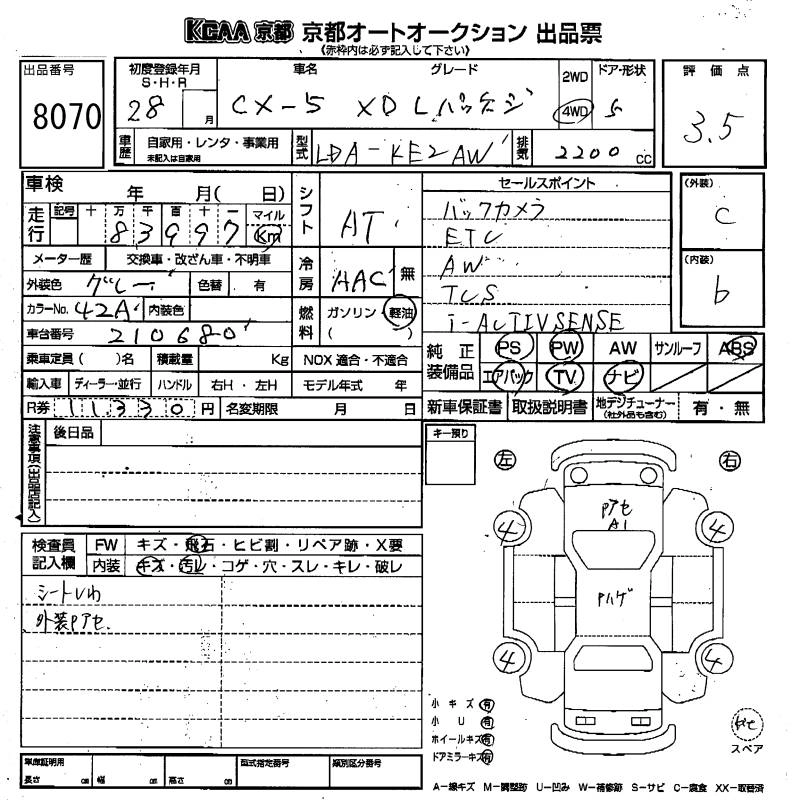 KCAA 京都 京都オートオークション 出品票
(赤枠内は必ず記入して下さい)
出品番号
8070
初度登録年月
S・H・R
28 月
車名 グレード
CX-5 XD Lパッケージ
2WD
4WD
ドア・形状
5
評価点
3.5
車歴
自家用・レンタ・事業用
未記入は自家用
型式
LDA-KE2AW
排気
2200 cc
車検
年 月( 日)
シフト
AT
セールスポイント
バックカメラ
ETC
AW
TCS
i-ACTIVSENSE
(外装)
C
(内装)
b
走行
記号 十 万 千 百 十 一 マイル
8 3 9 9 7 Km
メーター歴 交換車・改ざん車・不明車
冷房
AAC 無
外装色 グレー 色替 有
カラーNo. 42A 内装色
燃料
ガソリン・軽油
( )
車台番号 210680
純正装備品
PS PW AW サンルーフ ABS
エアバック TV ナビ
乗車定員( )名 積載量 Kg NOX適合・不適合
輸入車 ディーラー・並行 ハンドル 右H・左H モデル年式 年
R券 11330円 名変期限 月 日
新車保証書 取扱説明書 地デジチューナー(社外品も含む) 有・無
注意事項(出品店記入)
後日品
キー預り
左 右
検査員記入欄
FW キズ・飛石・ヒビ割・リペア跡・X要
内装 キズ・汚レ・コゲ・穴・スレ・キレ・破レ
シートしわ
外装Pアセ
Pアセ
A1
Pハゲ
4 4
4 4
小キズ 有
小U 有
ホイールキズ 有
ドアミラーキズ 有
スペア
車庫証明用
長さ cm 幅 cm 高さ cm
型式指定番号 類別区分番号
A-線キズ M-調整跡 U-凹み W-補修跡 S-サビ C-腐食 XX-取替済